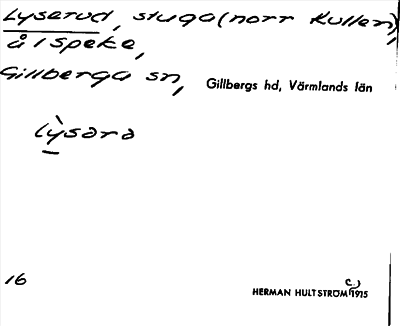 Lyserud, stuga (norr Kullen),
å l Speke,
Gillberga sn,
Gillbergs hd, Värmlands län
lỳsara
16
HERMAN HULTSTRÖM (c.) 1915